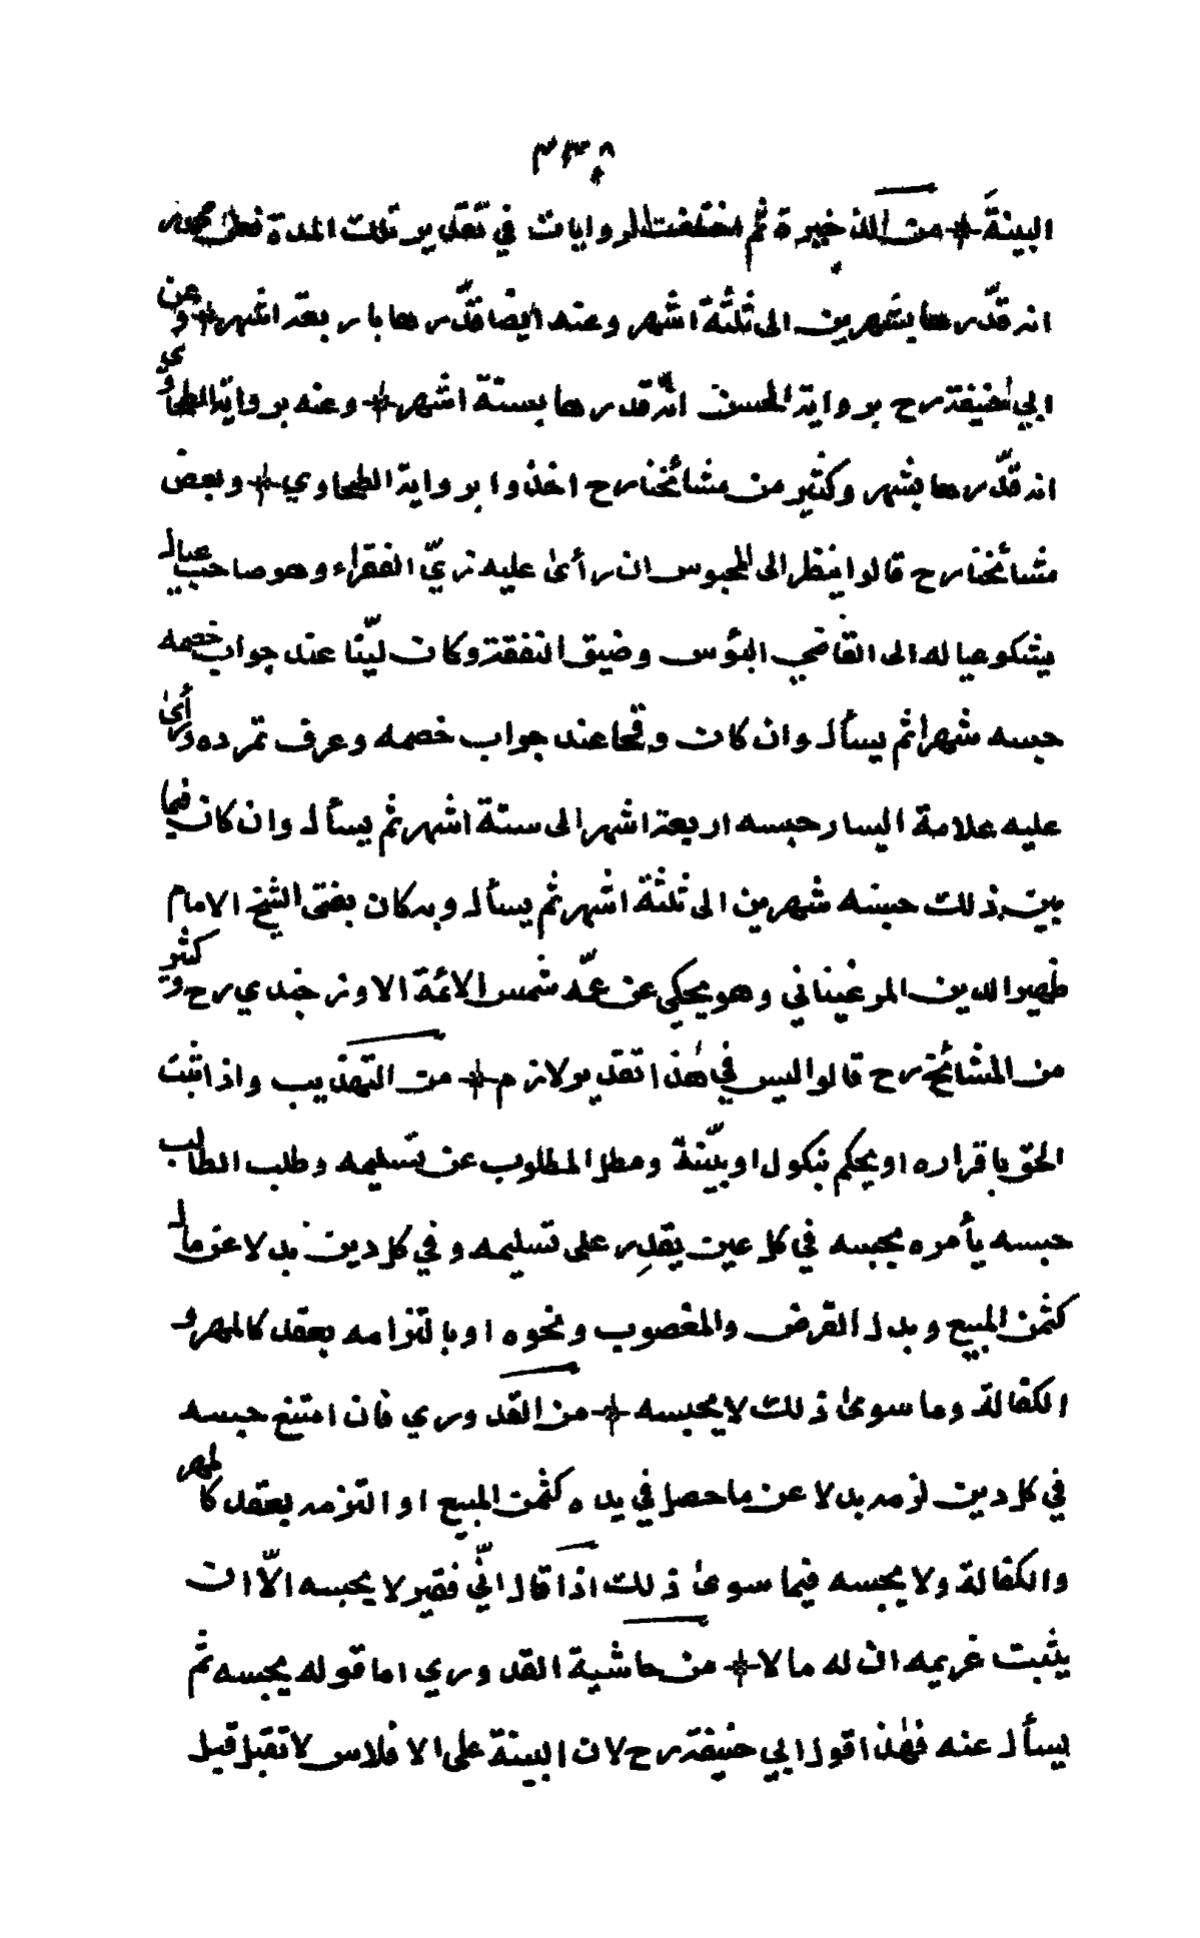 ٣٣٨
البينة * من الذخيرة ثم اختلفت الروايات في تقدير تلك المدة فعن محمد رح
انه قدّرها بشهرين الى ثلثة اشهر وعنه ايضا قدّرها باربعة اشهر * وعن
ابي حنيفة رح برواية الحسن انّه قدرها بستة اشهر * وعنه برواية الطحاوي
انه قدّرها بشهر وكثير من مشائخنا رح اخذوا برواية الطحاوي * وبعض
مشائخنا رح قالوا ينظر الى المحبوس ان رأىٰ عليه زيّ الفقراء وهو صاحب عيال
يشكو عياله الى القاضي البؤس وضيق النفقة وكان ليّنا عند جواب خصمه
حبسه شهرا ثم يسأل وان كان وقحا عند جواب خصمه وعرف تمرده ورأىٰ
عليه علامة اليسار حبسه اربعة اشهر الى ستة اشهر ثم يسأل وان كان فيما
بين ذلك حبسه شهرين الى ثلثة اشهر ثم يسأل وبه كان يفتى الشيخ الامام
ظهير الدين المرغيناني وهو يحكي عن عمّه شمس الائمة الاوزجندي رح وكثير
من المشائخ رح قالوا ليس في هٰذا تقدير لازم * من التهذيب واذا ثبت
الحق باقراره او يحكم بنكول او بيّنة ومطل المطلوب عن تسليمه وطلب الطالب
حبسه يأمره بحبسه في كل عين يقدِر على تسليمه وفي كل دين بدلا عن مال
كثمن المبيع وبدل القرض والمغصوب ونحوه او بالتزامه بعقد كالمهر و
الكفالة وما سوىٰ ذلك لا يحبسه * من القدوري فان امتنع حبسه
في كل دين لزمه بدلا عن ما حصل في يده كثمن المبيع او التزمه بعقد كالمهر
والكفالة ولا يحبسه فيما سوىٰ ذلك اذا قال انّي فقير لا يحبسه الّا ان
يثبت غريمه ان له مالا * من حاشية القدوري اما قوله يحبسه ثم
يسأل عنه فهٰذا قول ابي حنيفة رح لان البينة على الافلاس لا تقبل قبل